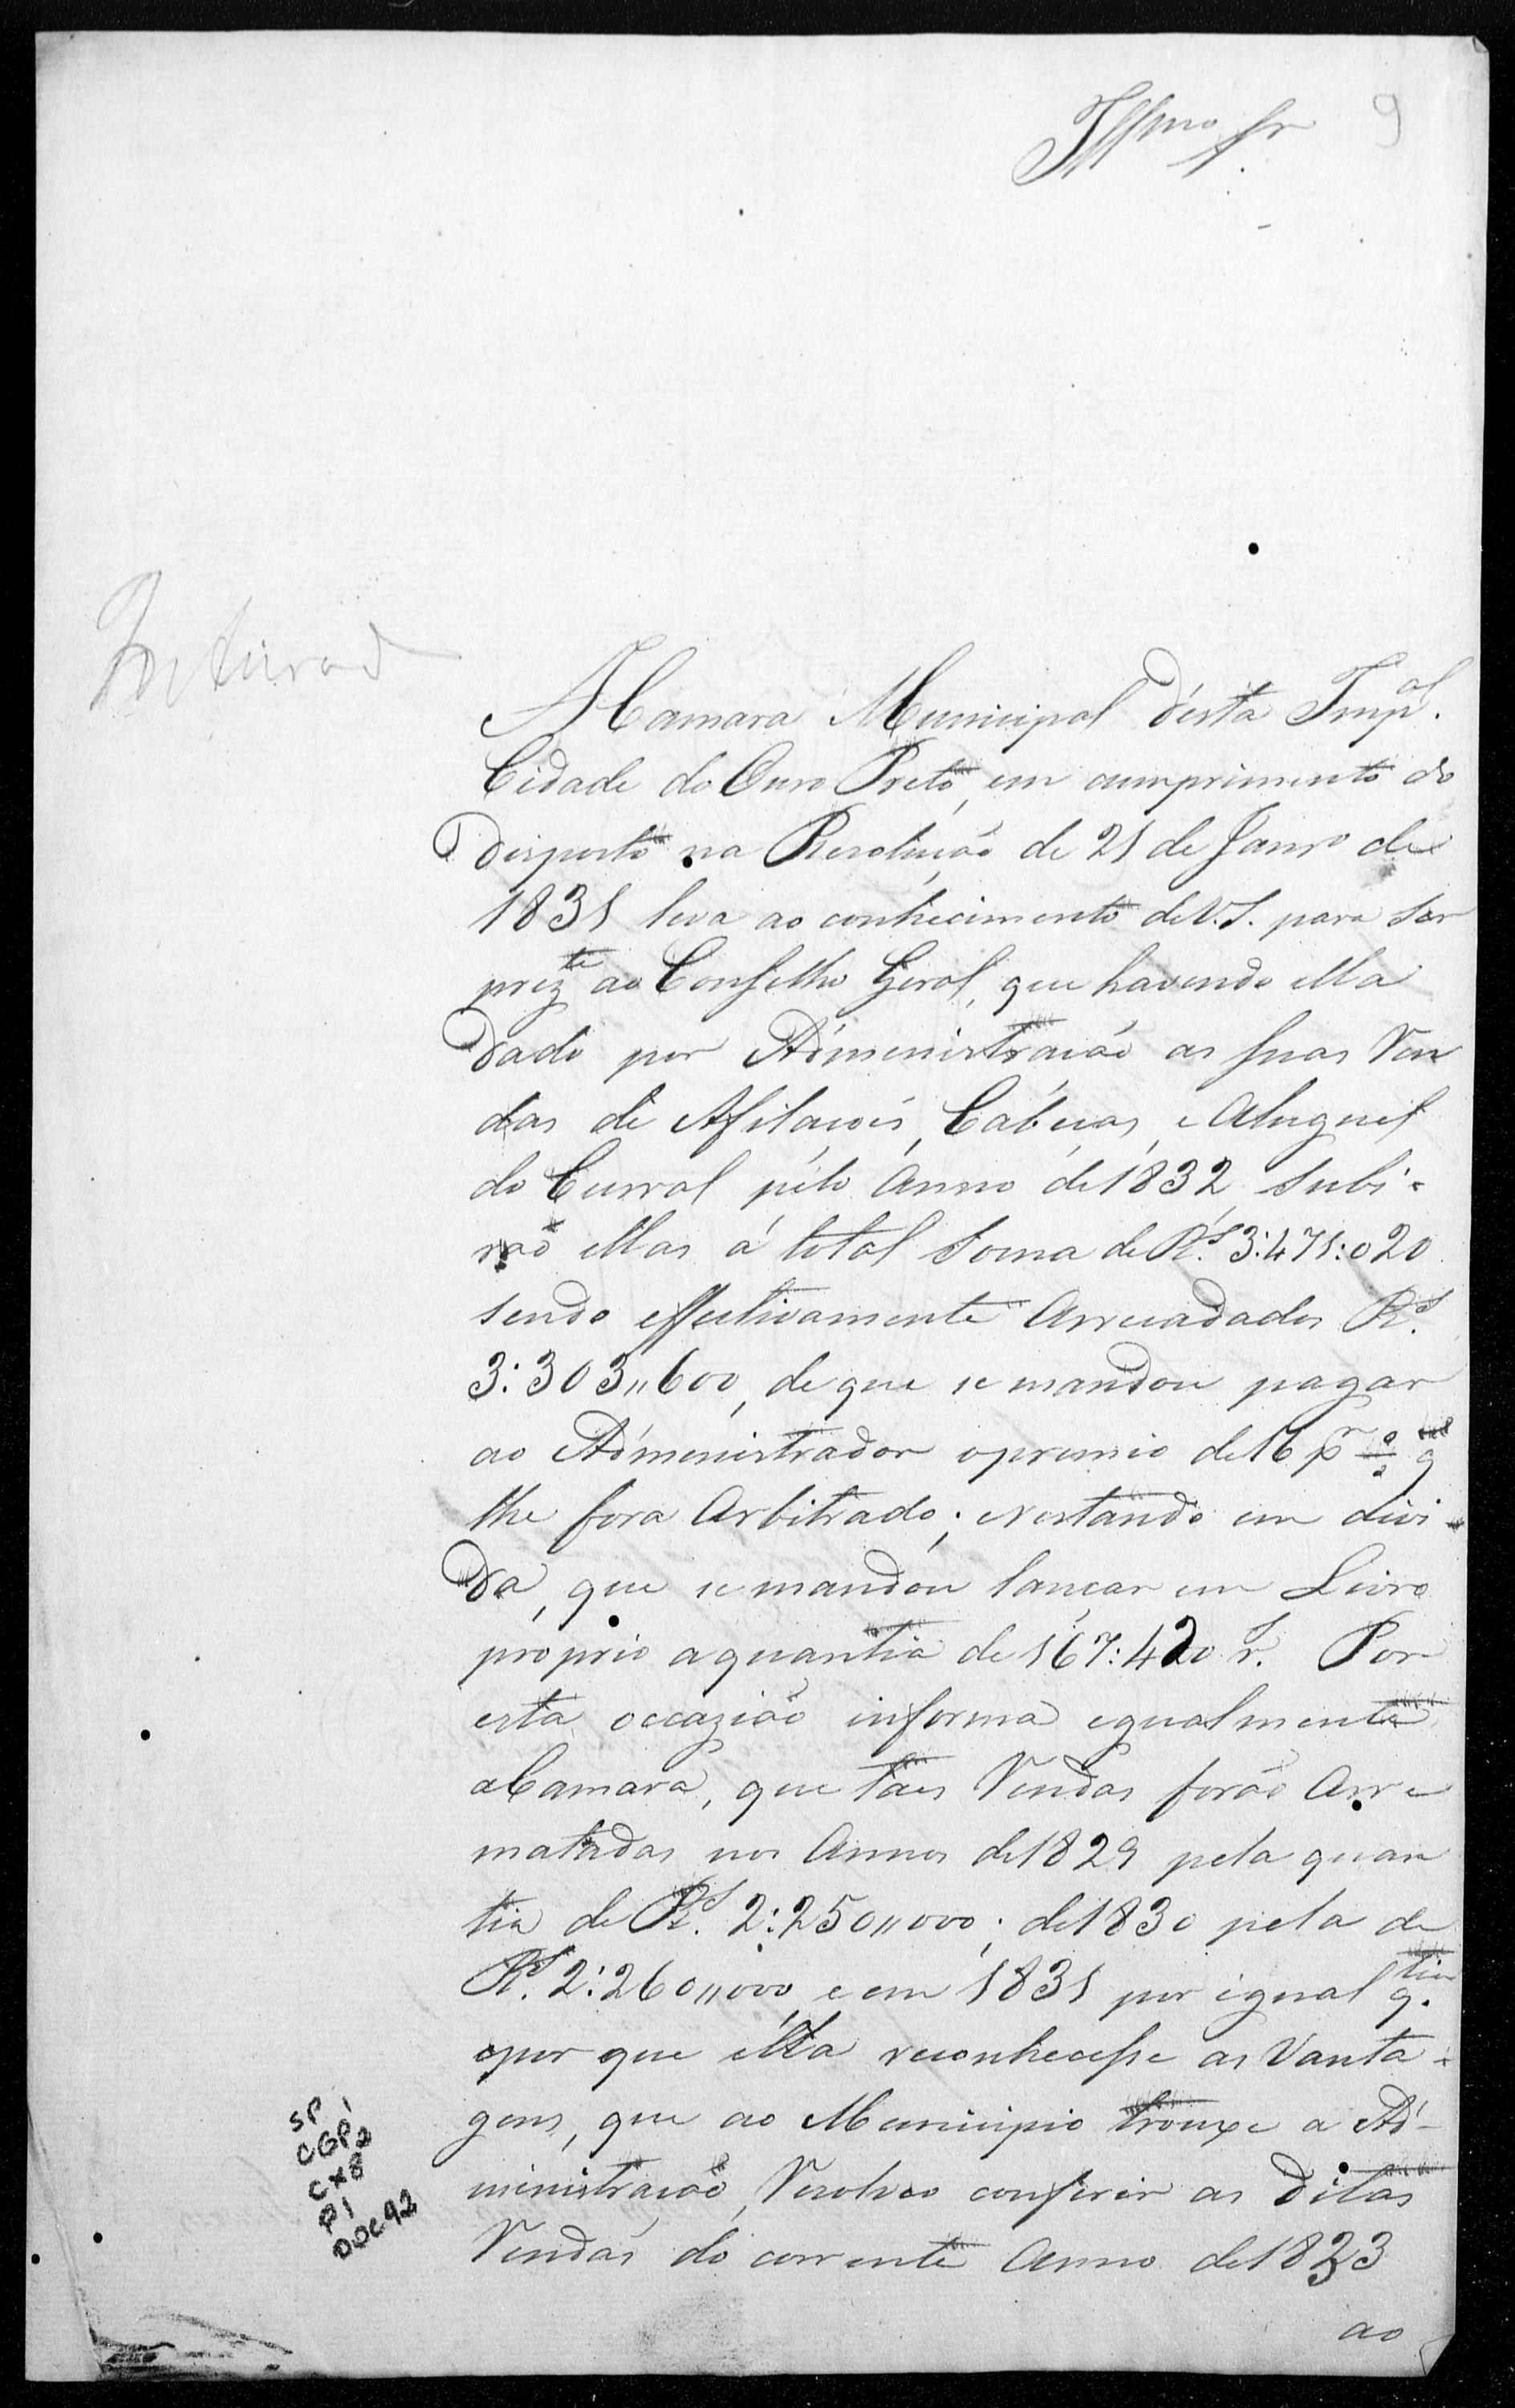 Illmo Sr
9
Inteirad
A Camara Municipal désta Impal.
Cidade do Ouro Preto, em cumprimento do
disposto na Resolução de 21 de Janro de
1831 leva ao conhecimento de V.S. para ser
prezte ao Conselho Geral, que havendo ella
dado por Administração as suas Ren
das de Afilaçoés, Cabeças, e Aluguel
do Curral pélo Anno de 1832 subi-
raõ ellas á total soma de Rs. 3:471:020
sendo effectivamente Arrecadados Rs.
3:303,,600, de que se mandou pagar
ao Administrador o premio de 16 pr % q
lhe fora Arbitrado; e restando em divi-
da, que se mandou lançar em Livro
proprio a quantia de 167:420 rs. Por
esta occazião informa egualmente
a Camara, que taes Rendas forão Arre
matadas nos Annos de 1829 pela quan
tia de Rs. 2:250,,000; de 1830 pela de
Rs. 2:260,,000, e em 1831 por igual q.tia
e por que élla reconhecesse as Vanta-
gens, que ao Municipio trouxe a Ad-
ministração, Resolveo conferir as ditas
Rendas do corrente Anno de 1833
ao
SP
CGP1
CX8
P1
DOC92